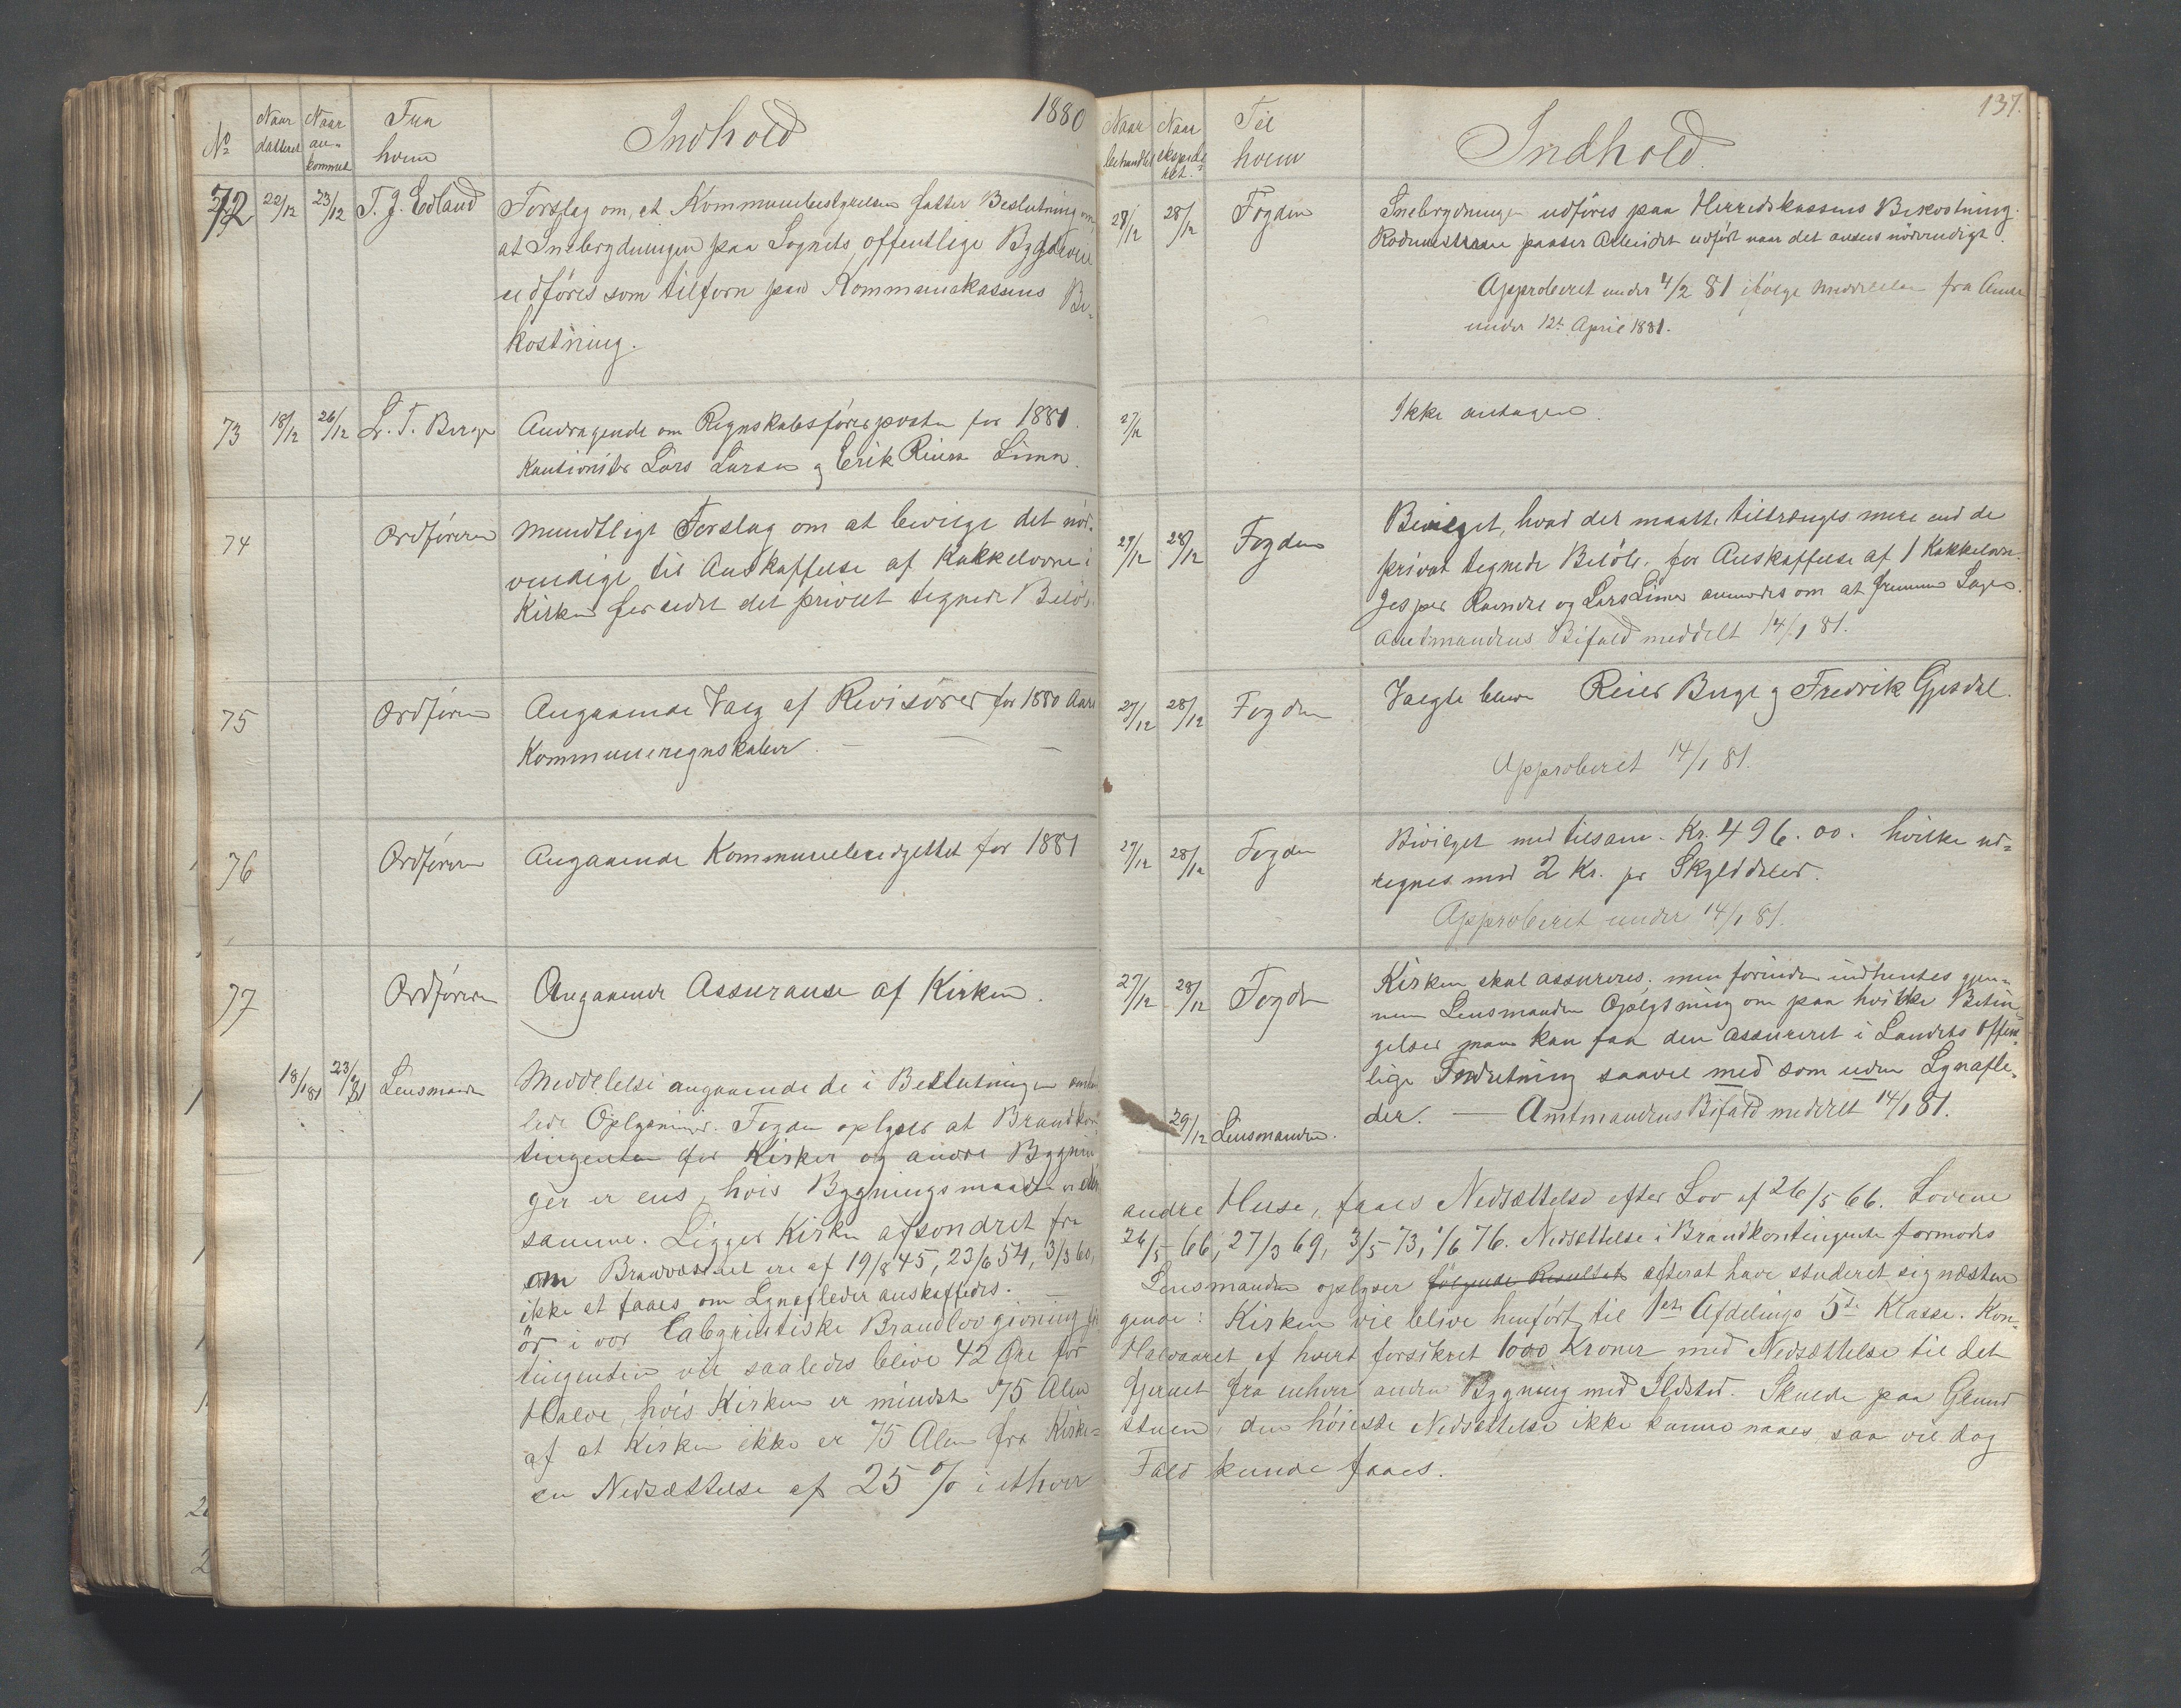 1880
Nº
Naar datteret
Naar an-kommet
Fra hvem
Indhold
72 22/12 23/12 T. J. Edland
Forslag om, at Kommunebestyrelsen fatter Beslutning om,
at Snebrydningen paa Sognets offentlige Bygdeveie
udføres som tilforn paa Kommunekassens Be-
kostning.
73 18/12 26/12 L. T. Berge
Andragende om Regnskabsførerposten for 1881.
Kautionister Lars Larsen og Erik Reiers Limn.
74 Ordføreren
Mundtligt Forslag om at bevilge det nød-
vendige til Anskaffelse af Kakkelovne i
Kirken foruden det privat tegnede Beløb.
75 Ordføreren
Angaaende Valg af Revisorer for 1880 Aars
Kommuneregnskaber.
76 Ordføreren
Angaaende Kommunebudgettet for 1881
77 Ordføreren
Angaaende Assuranse af Kirken.
18/1 81 23/1 81 Lensmanden
Meddelelse angaaende de i Beslutningen omhand
lede Oplysninger. Fogden oplyser at Brandkon-
tingenten for Kirker og andre Bygnin-
ger er ens, hvis Bygningsmaaden er den
samme. Ligger Kirken afsondret fra
om Brandvæsenet ere af 19/8 45, 23/6 54, 3/3 60,
ikke at faaes om Lynafleder anskaffedes. —
ør i vor labyrintiske Brandlovgivning
tingenten vil saaledes blive 42 Øre for
Halve, hvis Kirken er mindst 75 Alen
af at Kirken ikke er 75 Alen fra Kirke-
en Nedsættelse af 25 % i ethvert
137.
Naar behandlet
Naar ekspede-ret.
Til hvem
Indhold.
27/12 28/12 Fogden
Snebrydningen udføres paa Herredskassens Bekostning.
Rodemesterne passer Arbeidet udført naar det ansees nødvendigt.
Approberet under 4/2 81 ifølge Meddelelse fra Amtet
under 12te April 1881.
27/12
Ikke antagen.
27/12 28/12 Fogden
Bevilget, hvad der maatte tiltrænges mere end de
privat tegnede Beløb, for Anskaffelse af 1 Kakkelovn.
Jesper Ravndal og Lars Limn anmodes om at fremme Sagen.
Amtmandens Bifald meddelt 14/1 81.
27/12 28/12 Fogden
Valgte bleve Reier Berge og Fredrik Gjesdal.
Approberet 14/1 81.
27/12 28/12 Fogden
Bevilget med tilsam. Kr. 496.00. hvilke ud-
regnes med 2 Kr. pr Skylddaler.
Approberet under 14/1 81.
27/12 28/12 Fogden
Kirken skal assureres; men forinden indhentes gjen-
nem Lensmanden Oplysning om paa hvilke Betin-
gelser man kan faa den assureret i Landets offent-
lige Indretning saavel med som uden Lynafle-
der. — Amtmandens Bifald meddelt 14/1 81.
29/12 Lensmanden.
andre Huse, faaes Nedsættelse efter Lov af 26/5 66. Lovene
26/5 66, 27/3 69, 3/5 73, 1/6 76. Nedsættelse i Brandkontingente formodes
Lensmanden oplyser følgende Resultat efterat have studeret sig næsten
gende: Kirken vil blive henført til 1ste Afdelings 5te Klasse. Kon-
Halvaaret af hvert forsikret 1000 Kroner med Nedsættelse til det
fjernet fra enhver anden Bygning med Ildsted. Skulde paa Grund
stuen, den høieste Nedsættelse ikke kunne naaes saa vil dog
Fald kunde faaes.